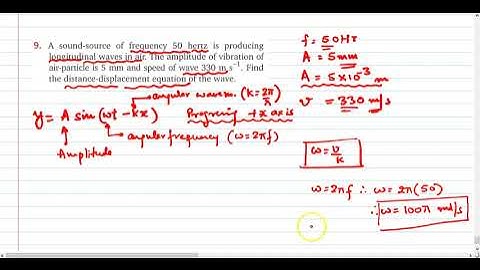 9. A sound-source of frequency 50 hertz is producing
longitudinal waves in air. The amplitude of vibration of
air-particle is 5 mm and speed of wave 330 m s⁻¹. Find
the distance-displacement equation of the wave.
f = 50Hz
A = 5mm
A = 5×10⁻³ m
v = 330 m/s
angular waveno. (k = 2π/λ)
y = A sin (ωt - kx) Progressing +x axis
angular frequency (ω = 2πf)
Amplitude
ω = v/k
ω = 2πf ∴ ω = 2π(50)
∴ ω = 100π rad/s